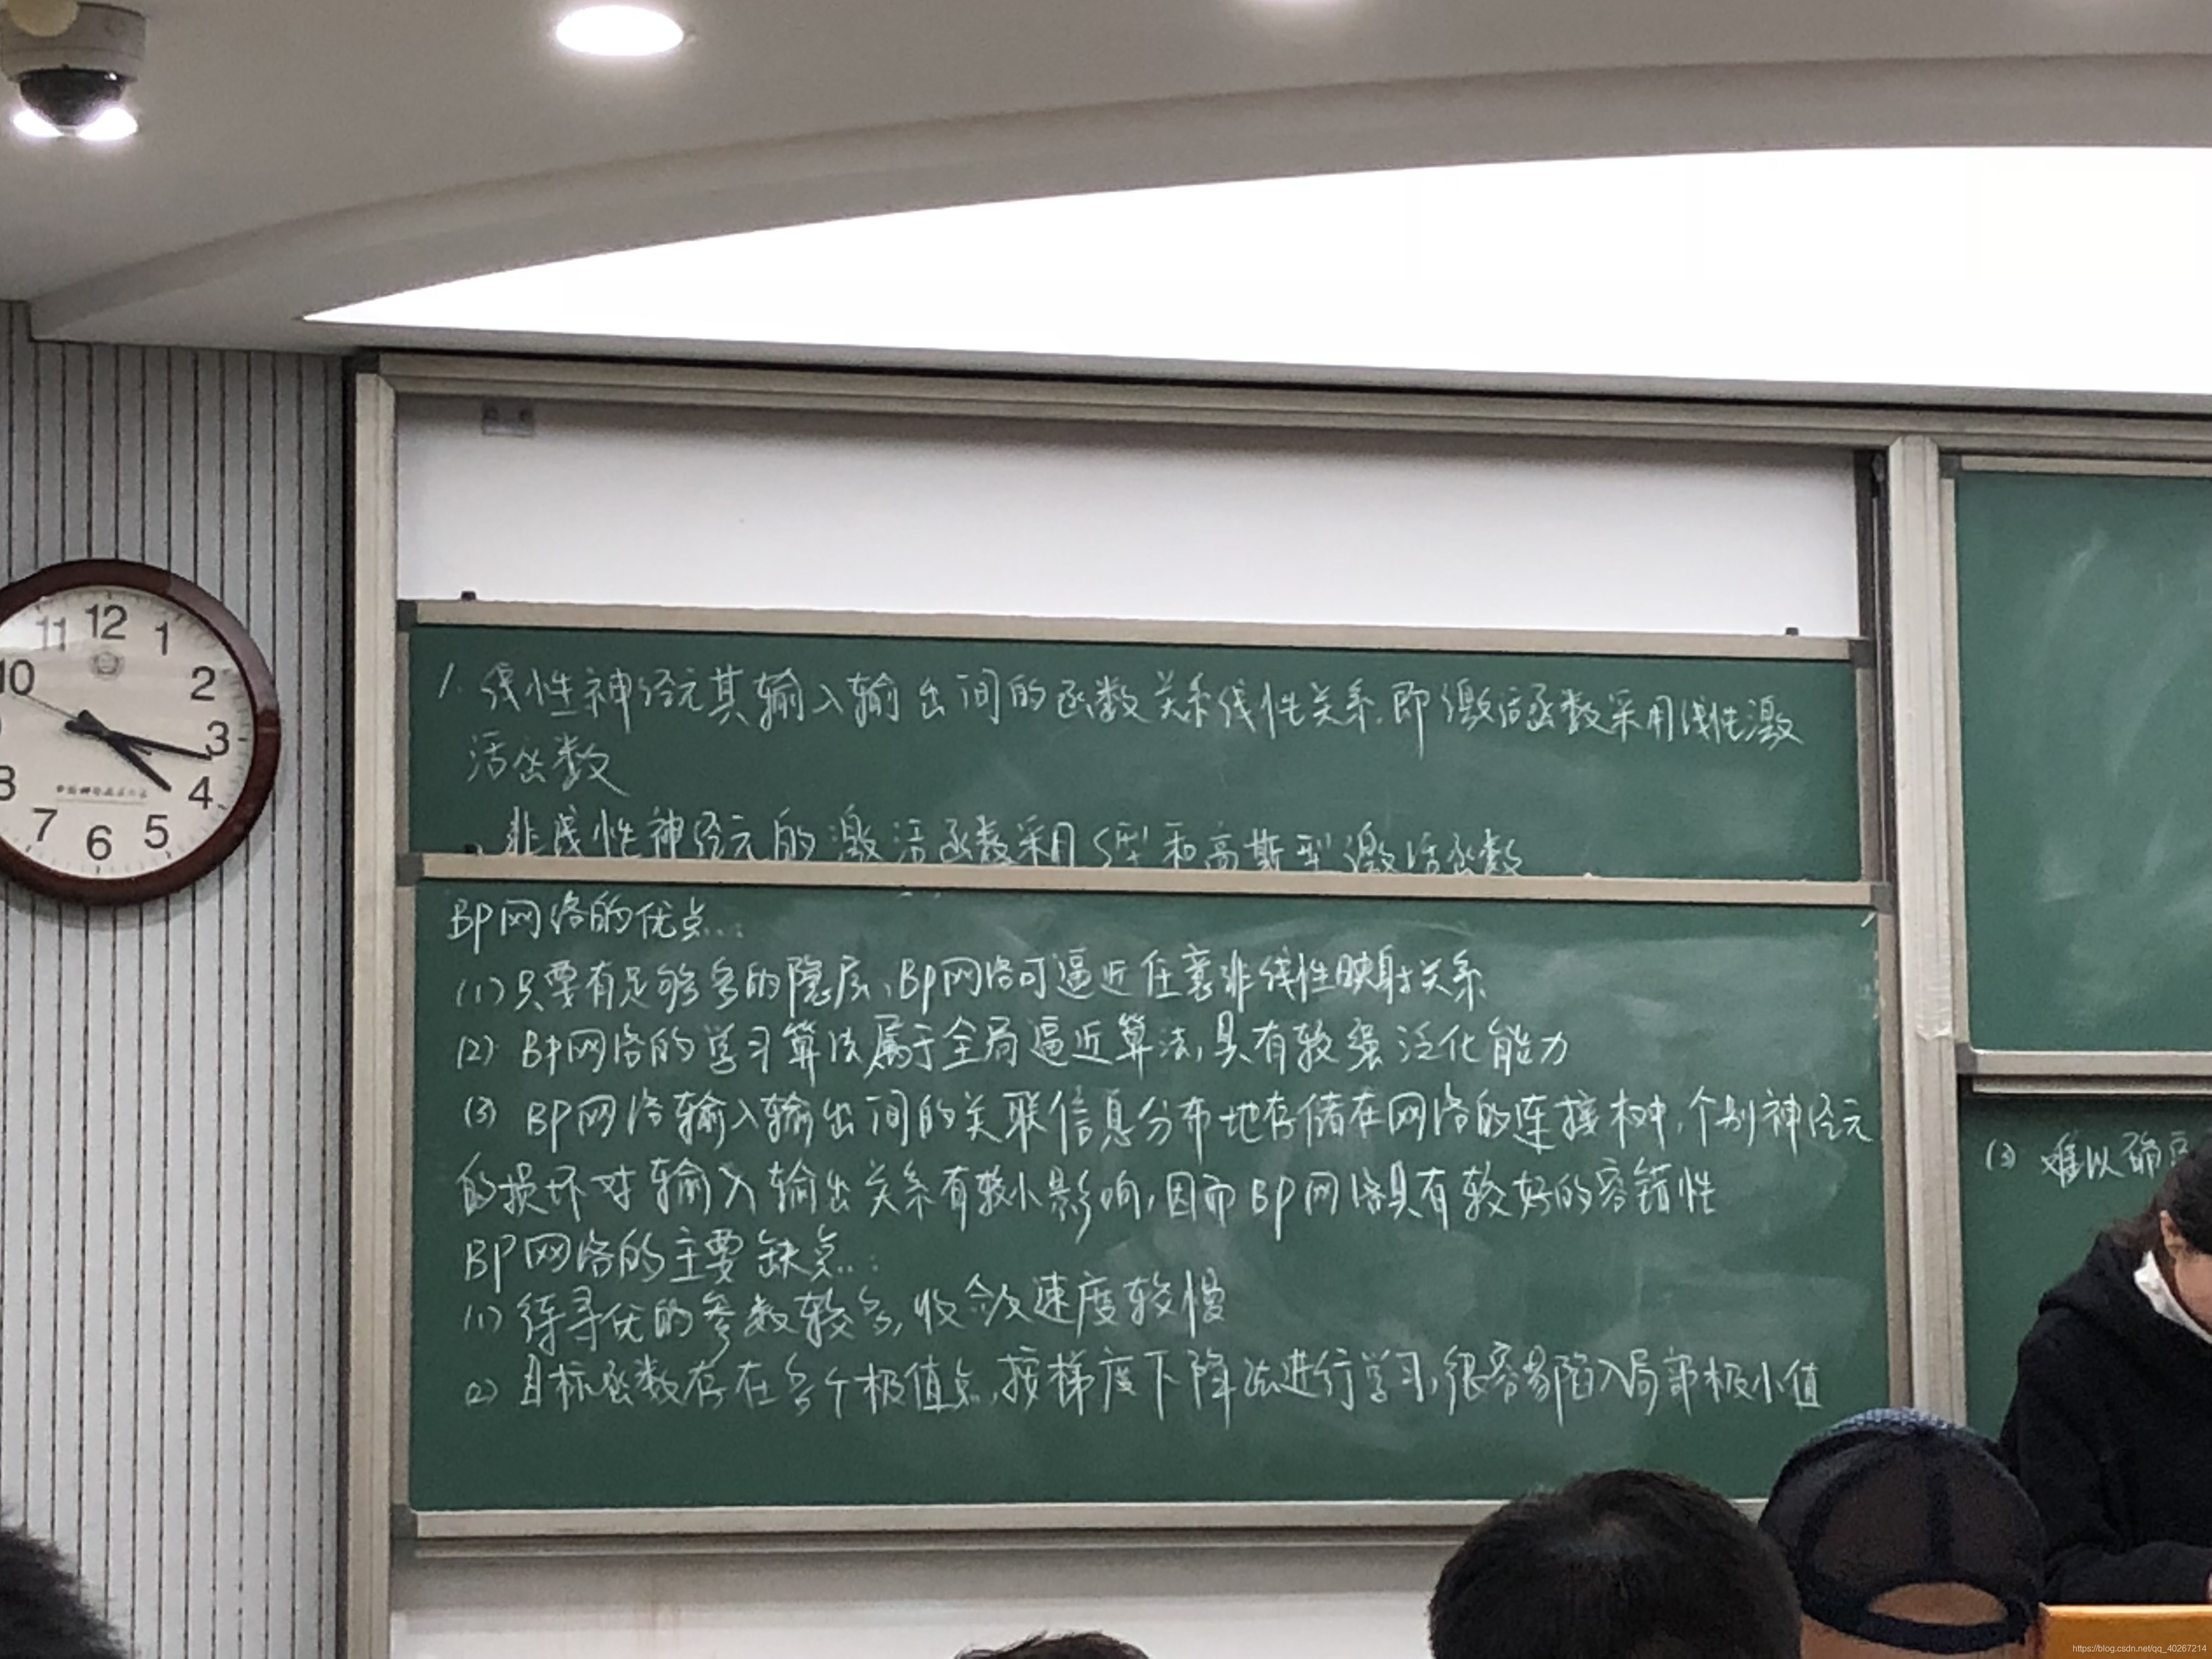 12
11
1
10
2
3
4
8
7
5
6
1. 线性神经元其输入输出间的函数关系线性关系.即激活函数采用线性激
活函数
非线性神经元的激活函数采用S型和高斯型激活函数
BP网络的优点:
(1)只要有足够多的隐层,BP网络可逼近任意非线性映射关系
(2) BP网络的学习算法属于全局逼近算法,具有较强泛化能力
(3) BP网络输入输出间的关联信息分布地存储在网络的连接权中,个别神经元
的损坏对输入输出关系有较小影响,因而BP网络具有较好的容错性
BP网络的主要缺点:
(1) 待寻优的参数较多,收敛速度较慢
(2) 目标函数存在多个极值点,按梯度下降法进行学习,很容易陷入局部极小值
(3) 难以确定
https://blog.csdn.net/qq_40267214